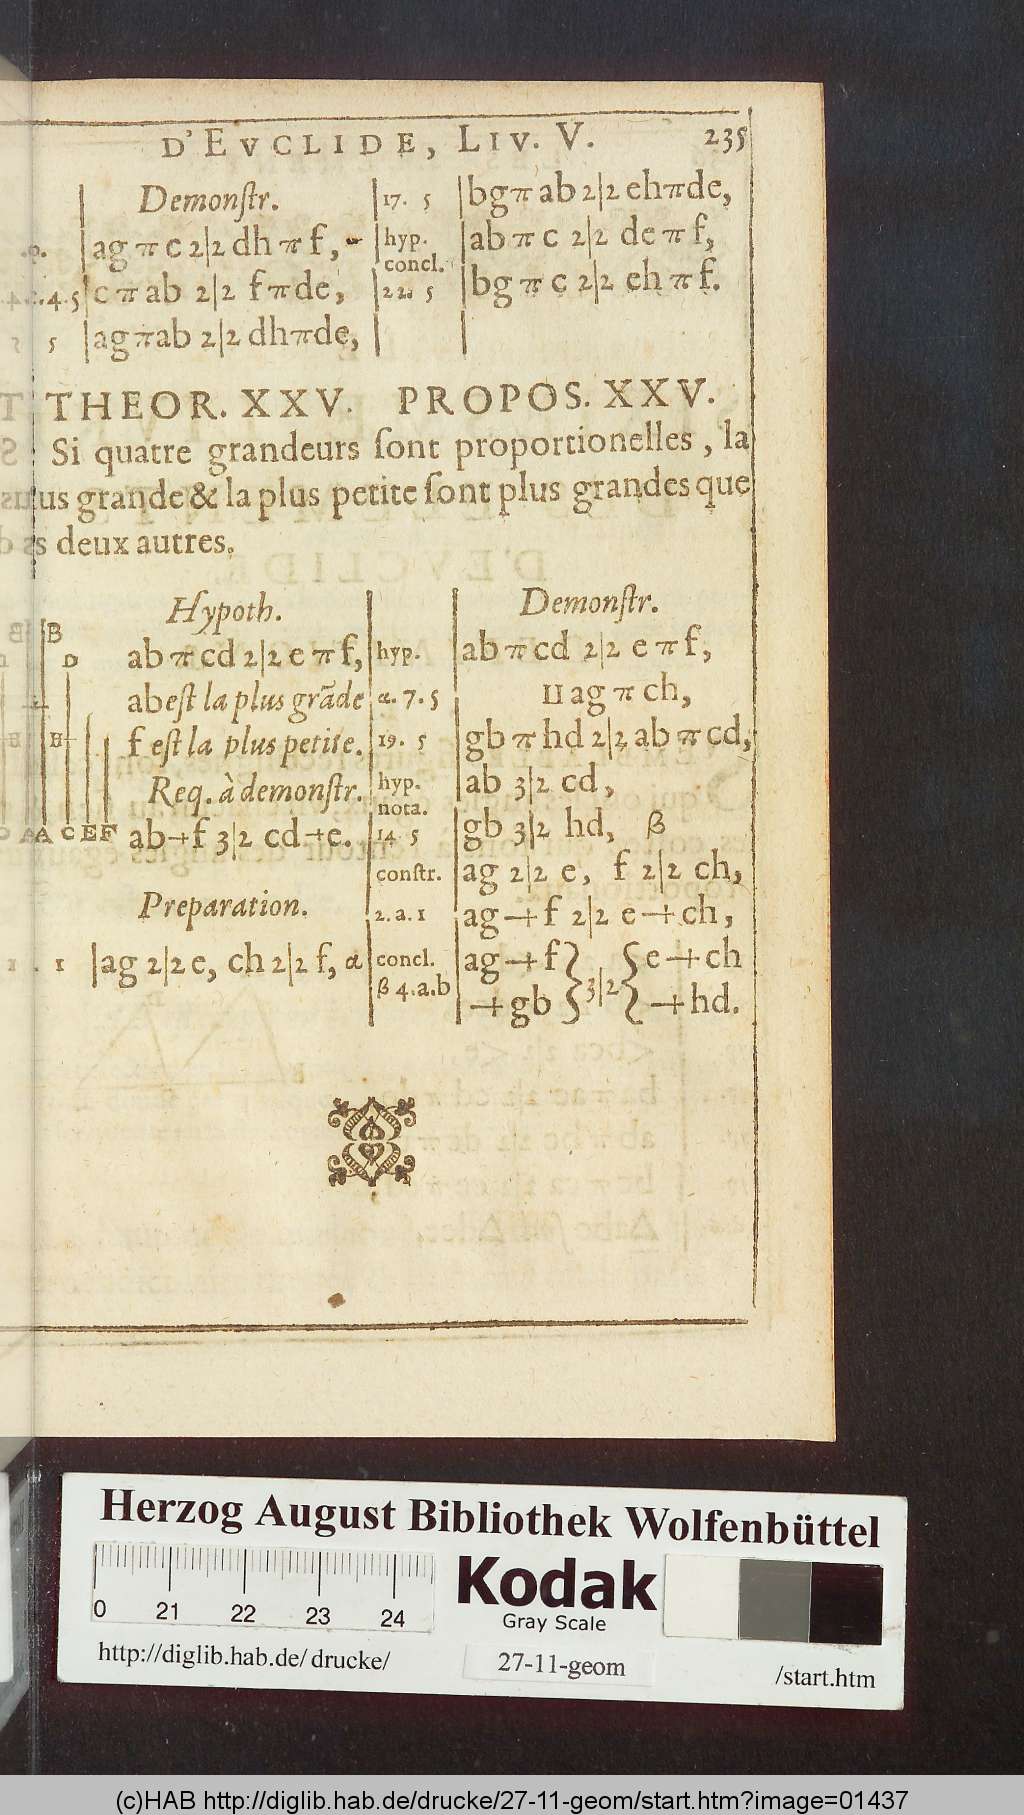 D'EVCLIDE, LIV. V. 235
Demonſtr.
ag π c 2|2 dh π f,
4.5 c π ab 2|2 f π de,
5 ag π ab 2|2 dh π de,
17. 5 bg π ab 2|2 eh π de,
hyp. ab π c 2|2 de π f,
concl.
22. 5 bg π c 2|2 eh π f.
THEOR. XXV. PROPOS. XXV.
Si quatre grandeurs ſont proportionelles, la
us grande & la plus petite ſont plus grandes que
s deux autres.
Hypoth.
ab π cd 2|2 e π f,
ab eſt la plus grãde
f eſt la plus petite.
Req. à demonſtr.
ab + f 3|2 cd + e.
B
D
A C E F
Preparation.
1 . 1 ag 2|2 e, ch 2|2 f, α
Demonſtr.
hyp. ab π cd 2|2 e π f,
α. 7. 5 II ag π ch,
19. 5 gb π hd 2|2 ab π cd,
hyp. ab 3|2 cd,
nota.
14 5 gb 3|2 hd, β
conſtr. ag 2|2 e, f 2|2 ch,
2. a. 1 ag + f 2|2 e + ch,
concl. ag + f } 3|2 { e + ch
β 4. a. b + gb } { + hd.
Herzog August Bibliothek Wolfenbüttel
0 21 22 23 24
Kodak
Gray Scale
http://diglib.hab.de/drucke/ 27-11-geom /start.htm
(c)HAB http://diglib.hab.de/drucke/27-11-geom/start.htm?image=01437